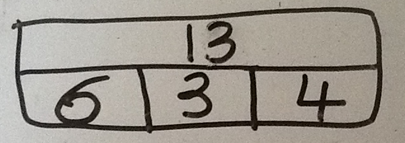 13
6 3 4